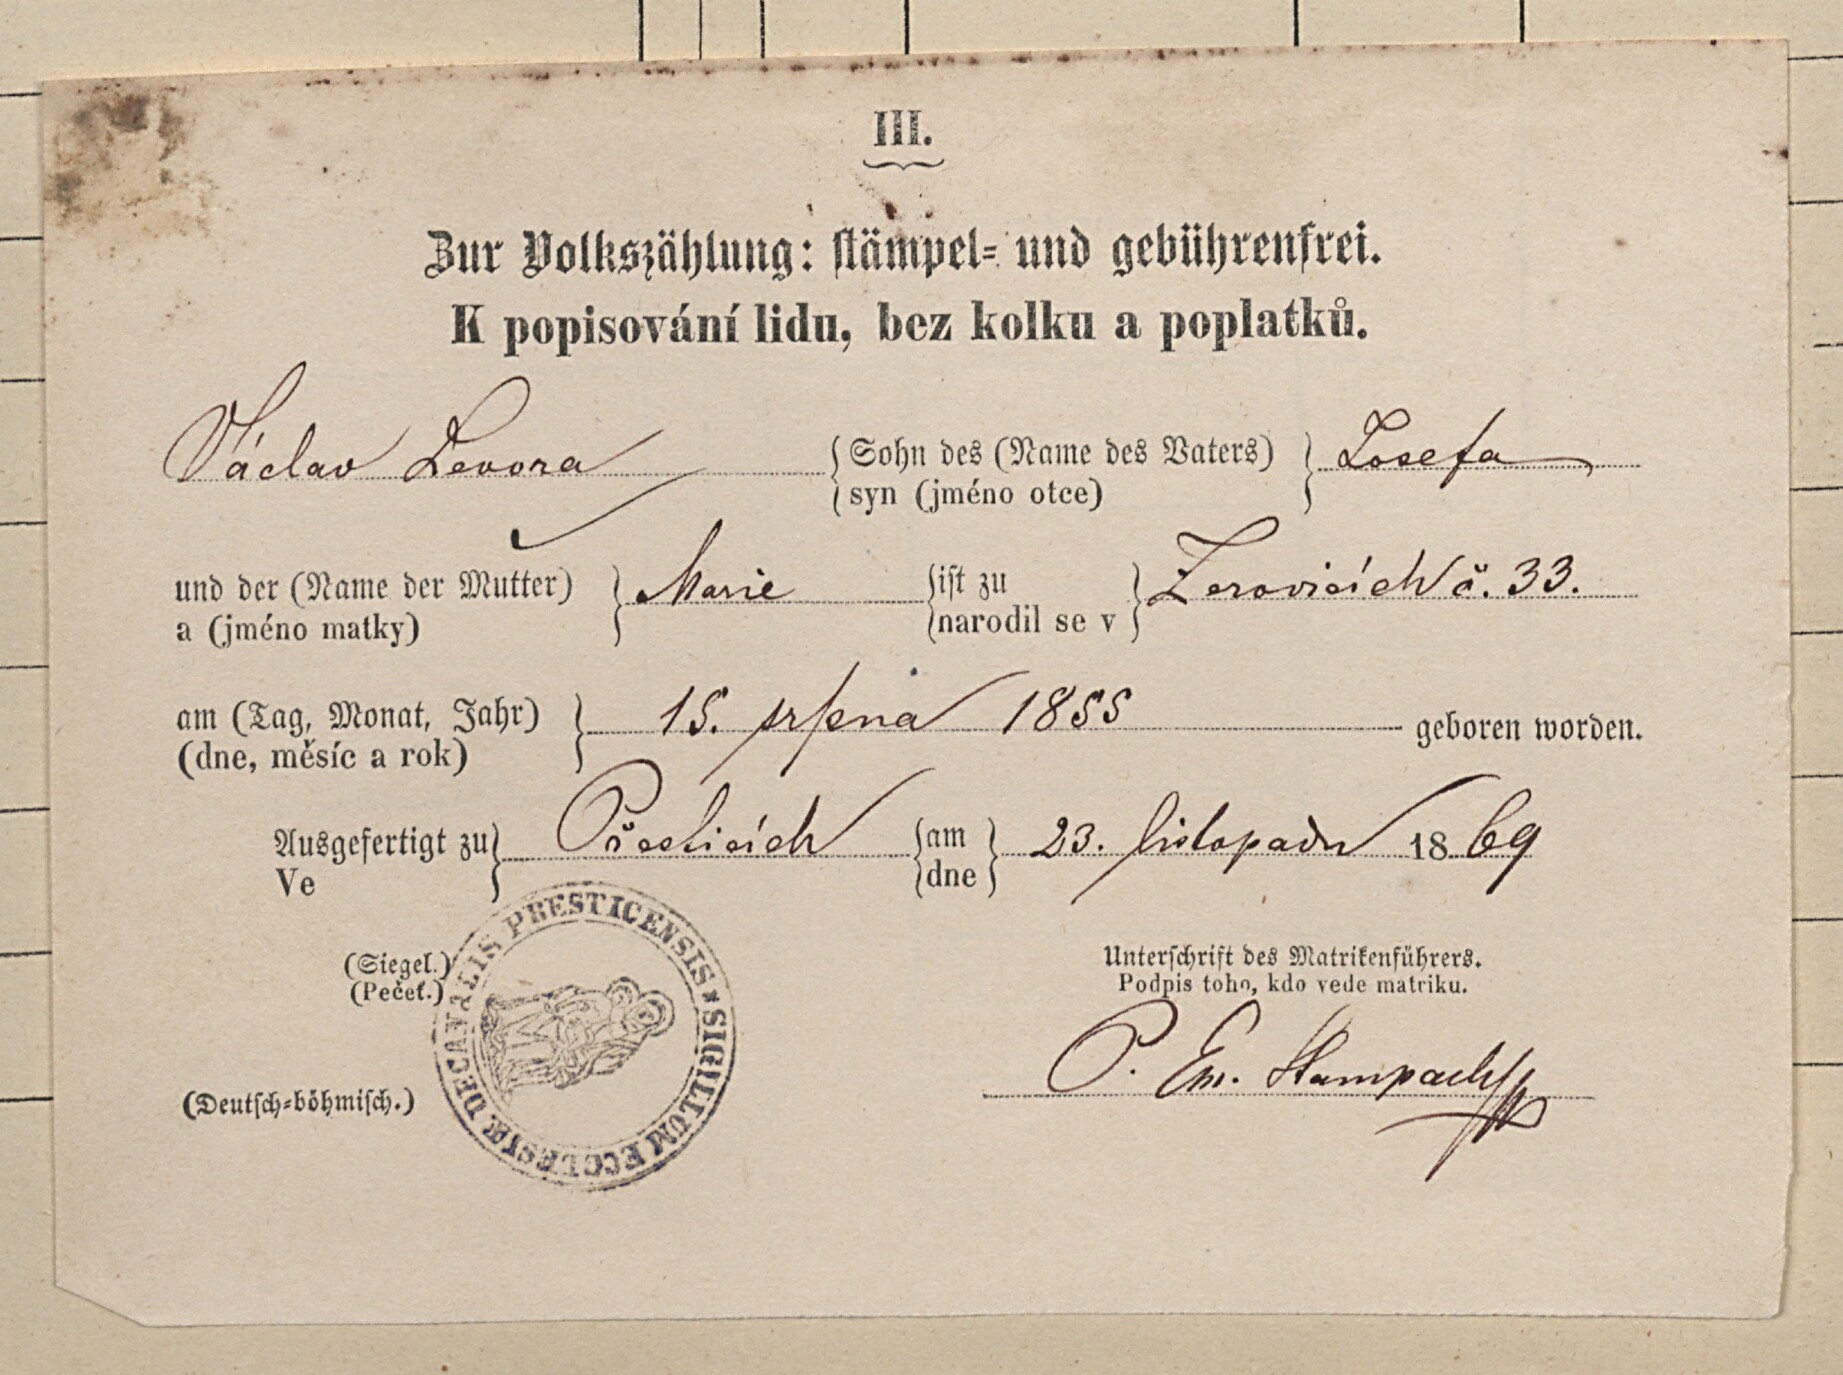 III.
Zur Volkszählung: stämpel= und gebührenfrei.
K popisování lidu, bez kolku a poplatků.
Václav Levora { Sohn des (Name des Vaters) } Josefa
syn (jméno otce)
und der (Name der Mutter) } Marie { ist zu } Zerovicích č. 33.
a (jméno matky) narodil se v
am (Tag, Monat, Jahr) } 15. srpna 1855 geboren worden.
(dne, měsíc a rok)
Ausgefertigt zu } Přesticích { am } 23. listopadu 1869
Ve dne
(Siegel.) Unterschrift des Matrikenführers.
(Pečeť.) Podpis toho, kdo vede matriku.
P. Em. Stampach
(Deutsch=böhmisch.)
SIGILLUM ECCLESIÆ DECANALIS PRESTICENSIS